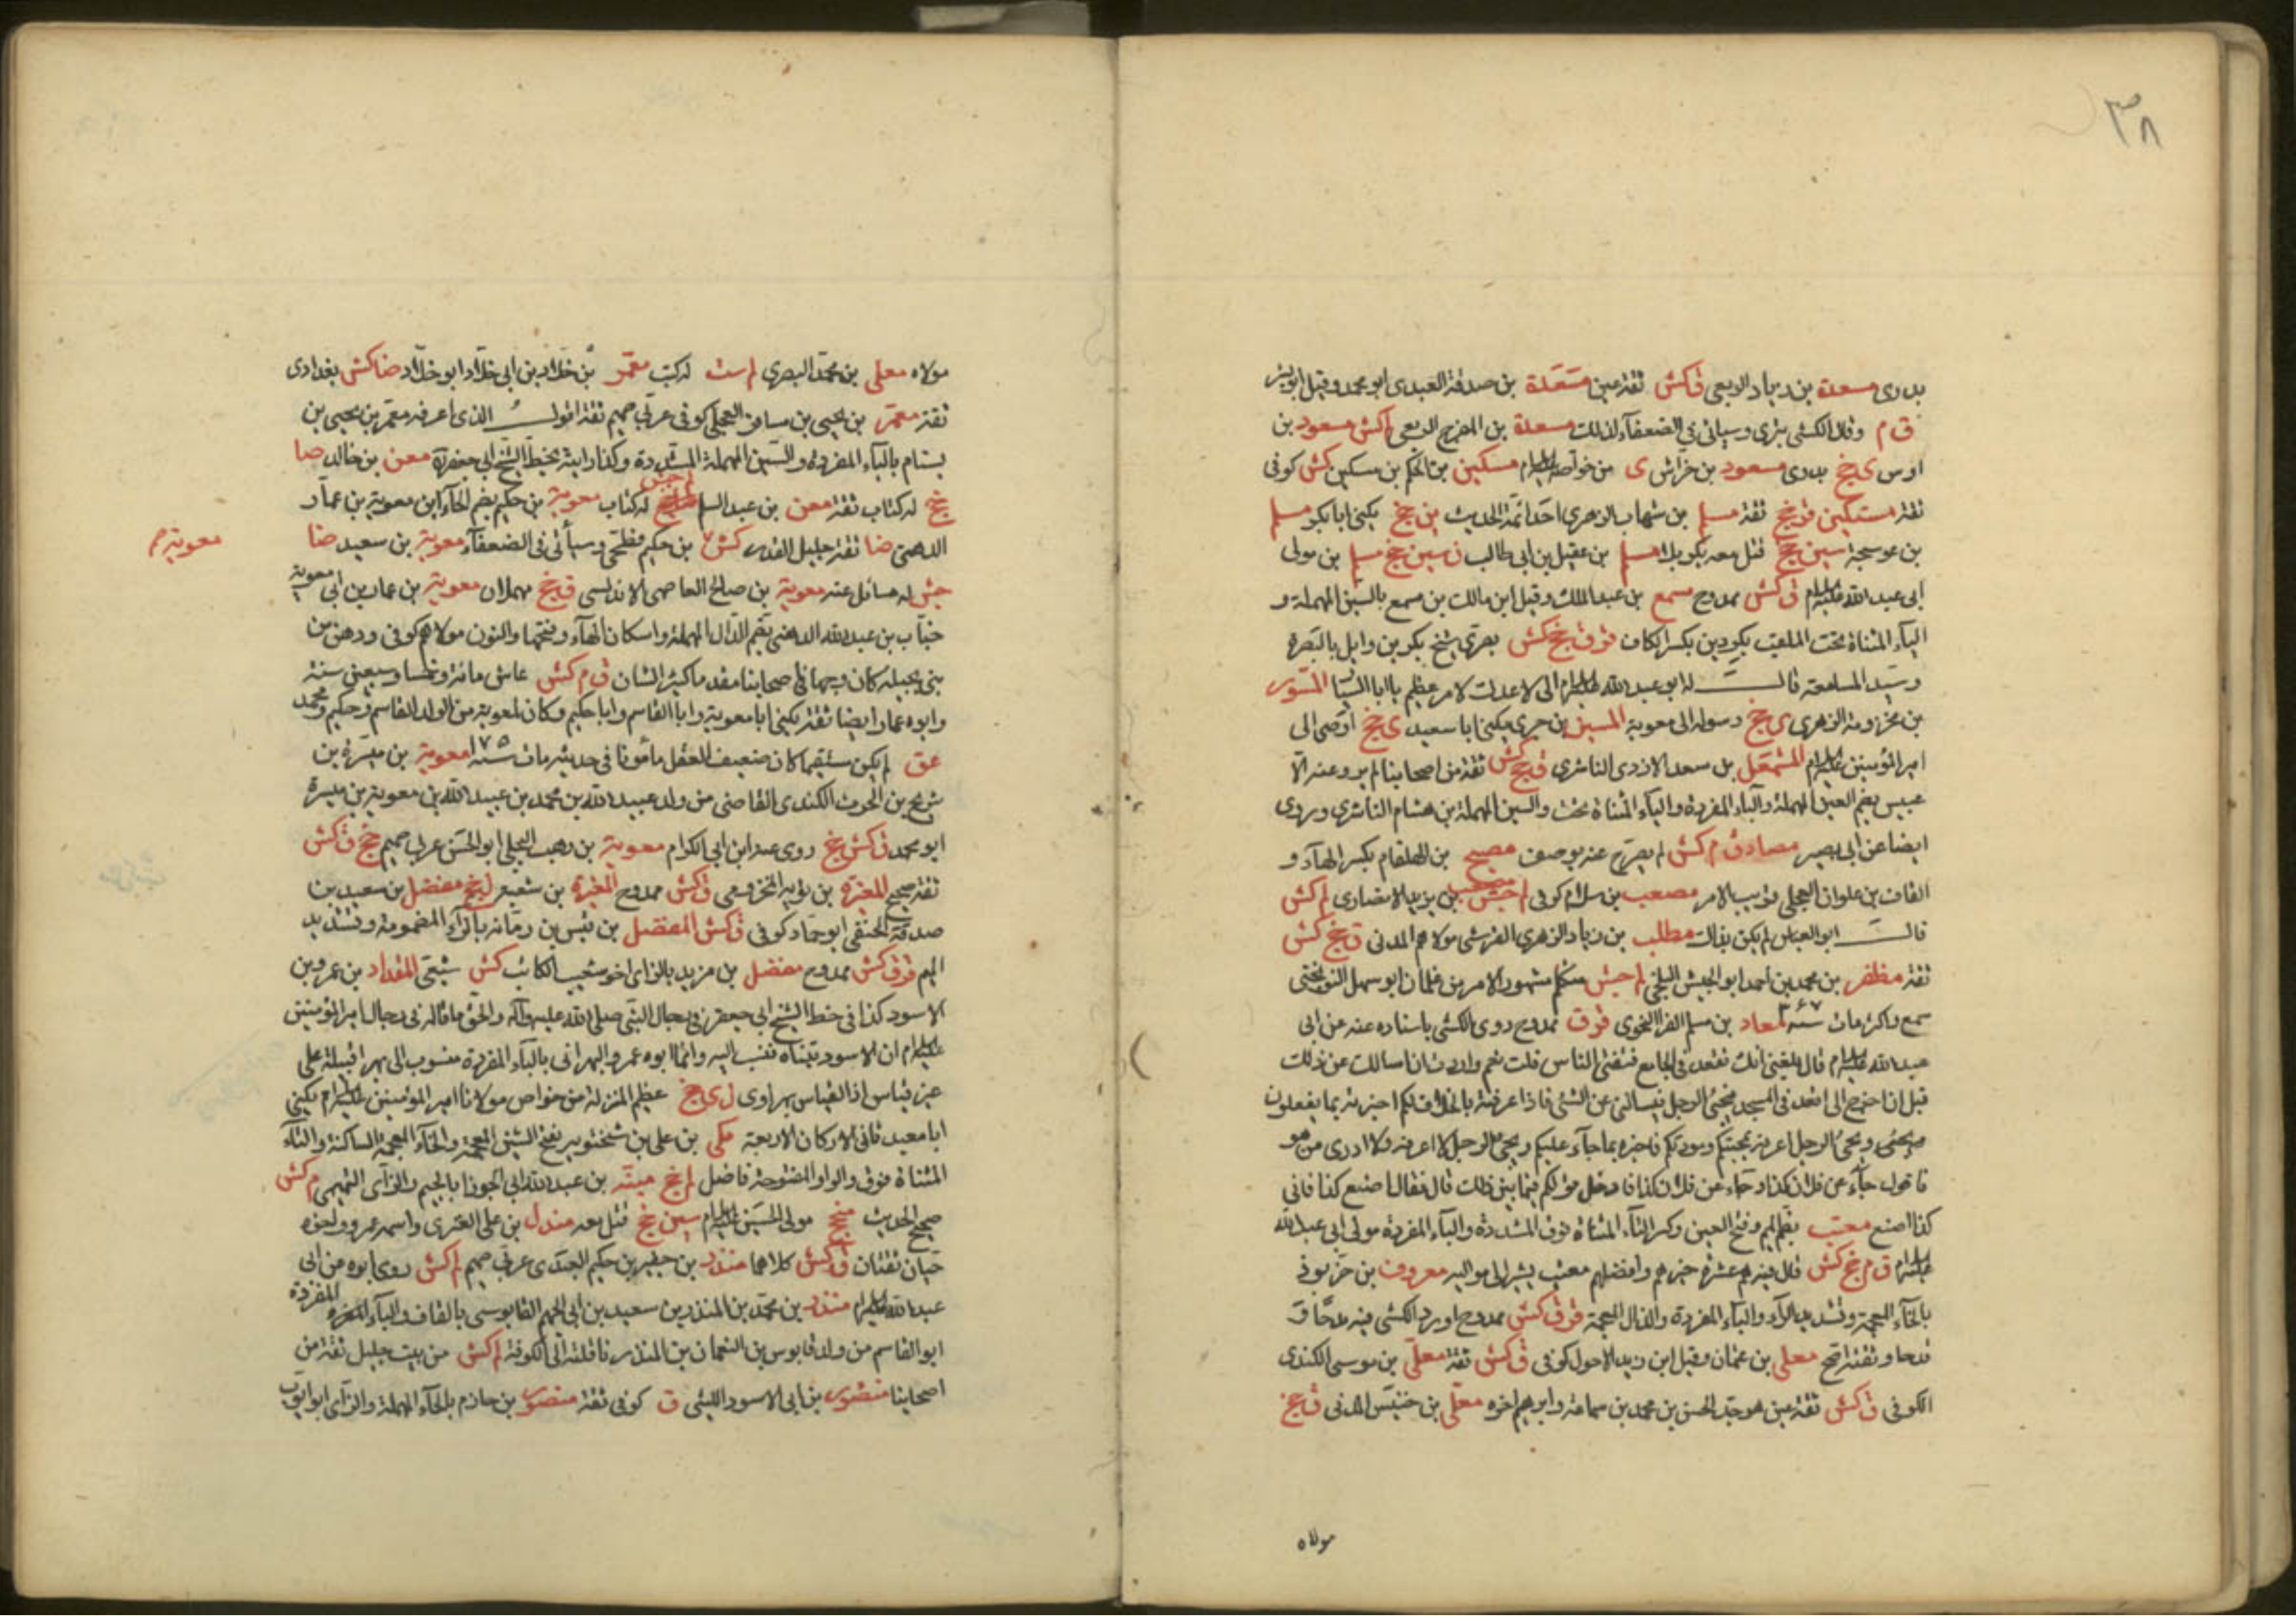 ٣٨
بدرى مسعدة بن زياد الربعى ق كش ثقة عين مسعدة بن صدقة العبدى ابو محمد وقيل ابو بشر
ق م وقال الكشى بترى وسيأتى فى الضعفآء لذلك مسعدة بن الفرج الربعى لم كش مسعود بن
اوس ى خج بدرى مسعود بن خراش ى من خواصه عليه السلام مسكين بن الحكم بن مسكين كش كوفى
ثقة مسلم بن شهاب الزهرى احد ائمة الحديث ين خج يكنى ابا بكر مسلم
بن عوسجة سين خج قتل معه بكربلا مسلم بن عقيل بن ابى طالب ن سين خج مسلم بن مولى
ابى عبد الله عليه السلام ق كش ممدوح مسمع بن عبد الملك وقيل ابن مالك بن مسمع بالسين المهملة و
اليآء المثناة تحت الملقب بكردين بكسر الكاف قر ق خج كش بصرى شيخ بكر بن وايل بالبصرة
وسيد المسامعة قال له ابو عبد الله عليه السلام انى لاعدك لامر عظيم يا ابا السيار المسور
بن مخرومة الزهرى ى خج رسوله الى معوية المسيب بن حرى يكنى ابا سعيد ى خج اوصى الى
امير المؤمنين عليه السلام المشمعل بن سعد الازدى الناشرى ق خج كش ثقة من اصحابنا لم يرو عنه الا
عبيس بضم العين المهملة والبآء المفردة واليآء المثناة تحت والسين المهملة بن هشام الناشرى وروى
ايضا عن ابى بصير مصادف م كش لم يصرح عنه بوصف مصبح بن الهلقام بكسر الهآء و
القاف بن علوان العجلى قريب الامر مصعب بن سلام كوفى لم جش مصعب بن يزيد الانصارى لم كش
قال ابو العباس لم يكن بذاك مطلب بن زياد الزهرى القرشى مولاهم المدنى ق خج كش
ثقة مظفر بن محمد بن احمد ابو الجيش البلخى لم جش متكلم مشهور الامر من غلمان ابو سهل النوبختى
سمع فاكثر مات سنة ٣٦٧ معاذ بن مسلم الفرا النحوى قر ق ممدوح روى الكشى باسناده عنه عن ابى
عبد الله عليه السلام قال بلغنى انك تقعد فى الجامع فتفتى الناس قلت نعم واردت ان اسالك عن ذلك
قبل ان اخرج انى اقعد فى المسجد فيجئ الرجل فيسالنى عن الشئ فاذا عرفته بالخلاف لكم اخبرته بما يفعلون
ويجئ الرجل اعرفه بمحبتكم ومودتكم فاخبره بما جآء عنكم ويجئ الرجل لا اعرفه ولا ادرى من هو
فاقول جآء عن فلان كذا وجاء عن فلان كذا فادخل قولكم فيما بين ذلك قال فقال اصنع كذا فانى
كذا اصنع معتب بضم الميم وفتح العين وكسر التآء المثناة فوق المشددة والبآء المفردة مولى ابى عبد الله
عليه السلام ق م خج كش قال فيه هم عشرة خيرهم وافضلهم معتب يشير الى مواليه معروف بن خربوذ
بالخآء المعجمة وتشديد الرآء والبآء المفردة والذال المعجمة قر ق كش ممدوح اورد الكشى فيه مدحا و
قدحا وثقته اصح معلى بن عثمان وقيل ابن زيد الاحول كوفى ق كش ثقة معلى بن موسى الكندى
الكوفى ق كش ثقة عين هو جد الحسن بن محمد بن سماعة وابرهيم اخوه معلى بن خنيس المدنى ق خج
مولاه
مولاه معلى بن محمد البصرى لم ست له كتب معمر بن خلاد بن ابى خلاد ابو خلاد ضا كش بغدادى
ثقة معمر بن يحيى بن مسافر العجلى كوفى عربى صميم ثقة اقول الذى اعرفه معمر بن يحيى بن
بسام بالبآء المفردة والسين المهملة المشددة وكذا رايته بخط الشيخ ابى جعفر ره معن بن خالد ضا
خج له كتاب ثقة معن بن عبد السلم لم جش له كتاب معوية بن حكيم بضم الحآء ابن معوية بن عمار
الدهنى ضا ثقة جليل القدر كش بن حكيم فطحى وسيأتى فى الضعفآء معوية بن سعيد ضا
معوية م
جش له مسائل عنه معوية بن صالح العاصمى الاندلسى ق خج مهملان معوية بن عمار بن ابى معوية
خباب بن عبد الله الدهنى بضم الدال المهملة واسكان الهآء وفتحها والنون مولاهم كوفى ودهن من
بنى بجيلة كان وجها فى اصحابنا مقدما كبير الشان ق م كش عاش مائة وخمسا وسبعين سنة
وابوه عمار ايضا ثقة يكنى ابا معوية وابا القاسم وابا حكيم وكان لمعوية من الولد القاسم وحكيم ومحمد
عق لم يكن مستقيما كان ضعيف العقل مأمونا فى حديثه مات سنة ١٧٥ معوية بن ميسرة بن
شريح بن الحرث الكندى القاضى من ولد عبيد الله بن محمد بن عبيد الله بن معوية بن ميسرة
ابو محمد ق كش خج روى عنه ابن ابى الكرام معوية بن وهب البجلى ابو الحسن عربى صميم خج ق كش
ثقة صحيح المغيرة بن توبه المخزومى ق كش ممدوح المغيرة بن شعبة ل خج مفضل بن سعيد بن
صدقة الحنفى ابو حماد كوفى ق كش المفضل بن قيس بن رمانه بالرآء المضمومة وتشديد
الميم قر ق كش ممدوح مفضل بن مزيد بالزاى اخو شعيب الكاتب كش شيعى المقداد بن عمرو بن
الاسود كذا فى خط الشيخ ابى جعفر فى رجال النبى صلى الله عليه وآله والحق ما قاله فى رجال امير المؤمنين
عليه السلام ان الاسود تبناه فنسب اليه وانما ابوه عمرو البهرانى بالبآء المفردة منسوب الى بهر اقبيلة على
غير قياس اذ القياس بهراوى ل ى خج عظيم المنزلة من خواص مولانا امير المؤمنين عليه السلام يكنى
ابا معبد ثانى الاركان الاربعة مكى بن على بن شختويه بفتح الشين المعجمة والخآء المعجمة الساكنة والتآء
المثناة فوق والواو المفتوحة فاضل لم خج بن عبد الله ابى الجوزا بالجيم والزآى التميمى م كش
صحيح الحديث منجح مولى الحسين عليه السلام سين خج قتل معه مندل بن على العنزى واسمه عمرو واخوه
حيان ثقتان ق كش كلاهما منذر بن جفير بن حكيم العبدى عربى صميم لم كش روى ابوه عن ابى
عبد الله عليه السلام منذر بن محمد بن المنذر بن سعيد بن ابى الجهم القابوسى بالقاف والبآء المفردة
ابو القاسم من ولد قابوس بن النعمان بن المنذر ناقلة الى الكوفة لم كش من بيت جليل ثقة من
اصحابنا منصور بن ابى الاسود الليثى ق كوفى ثقة منصور بن حازم بالحآء المهملة والزآى ابو ايوب